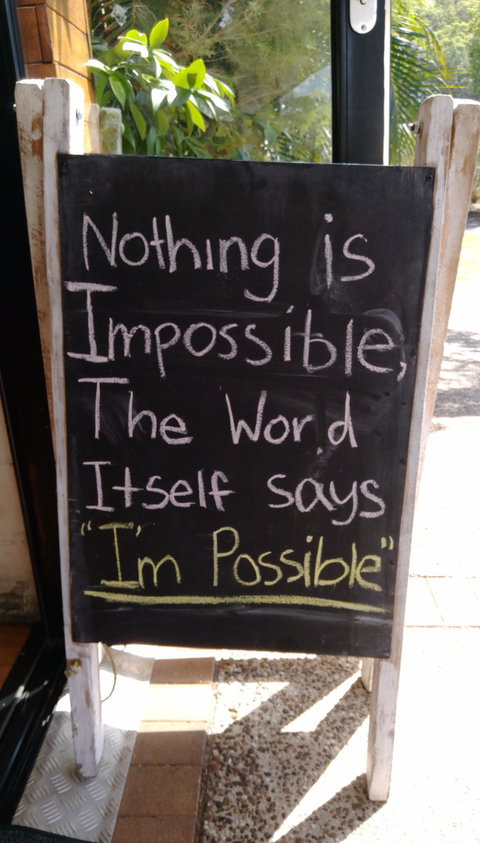 Nothing is
Impossible,
The Word
Itself says
"I'm Possible"